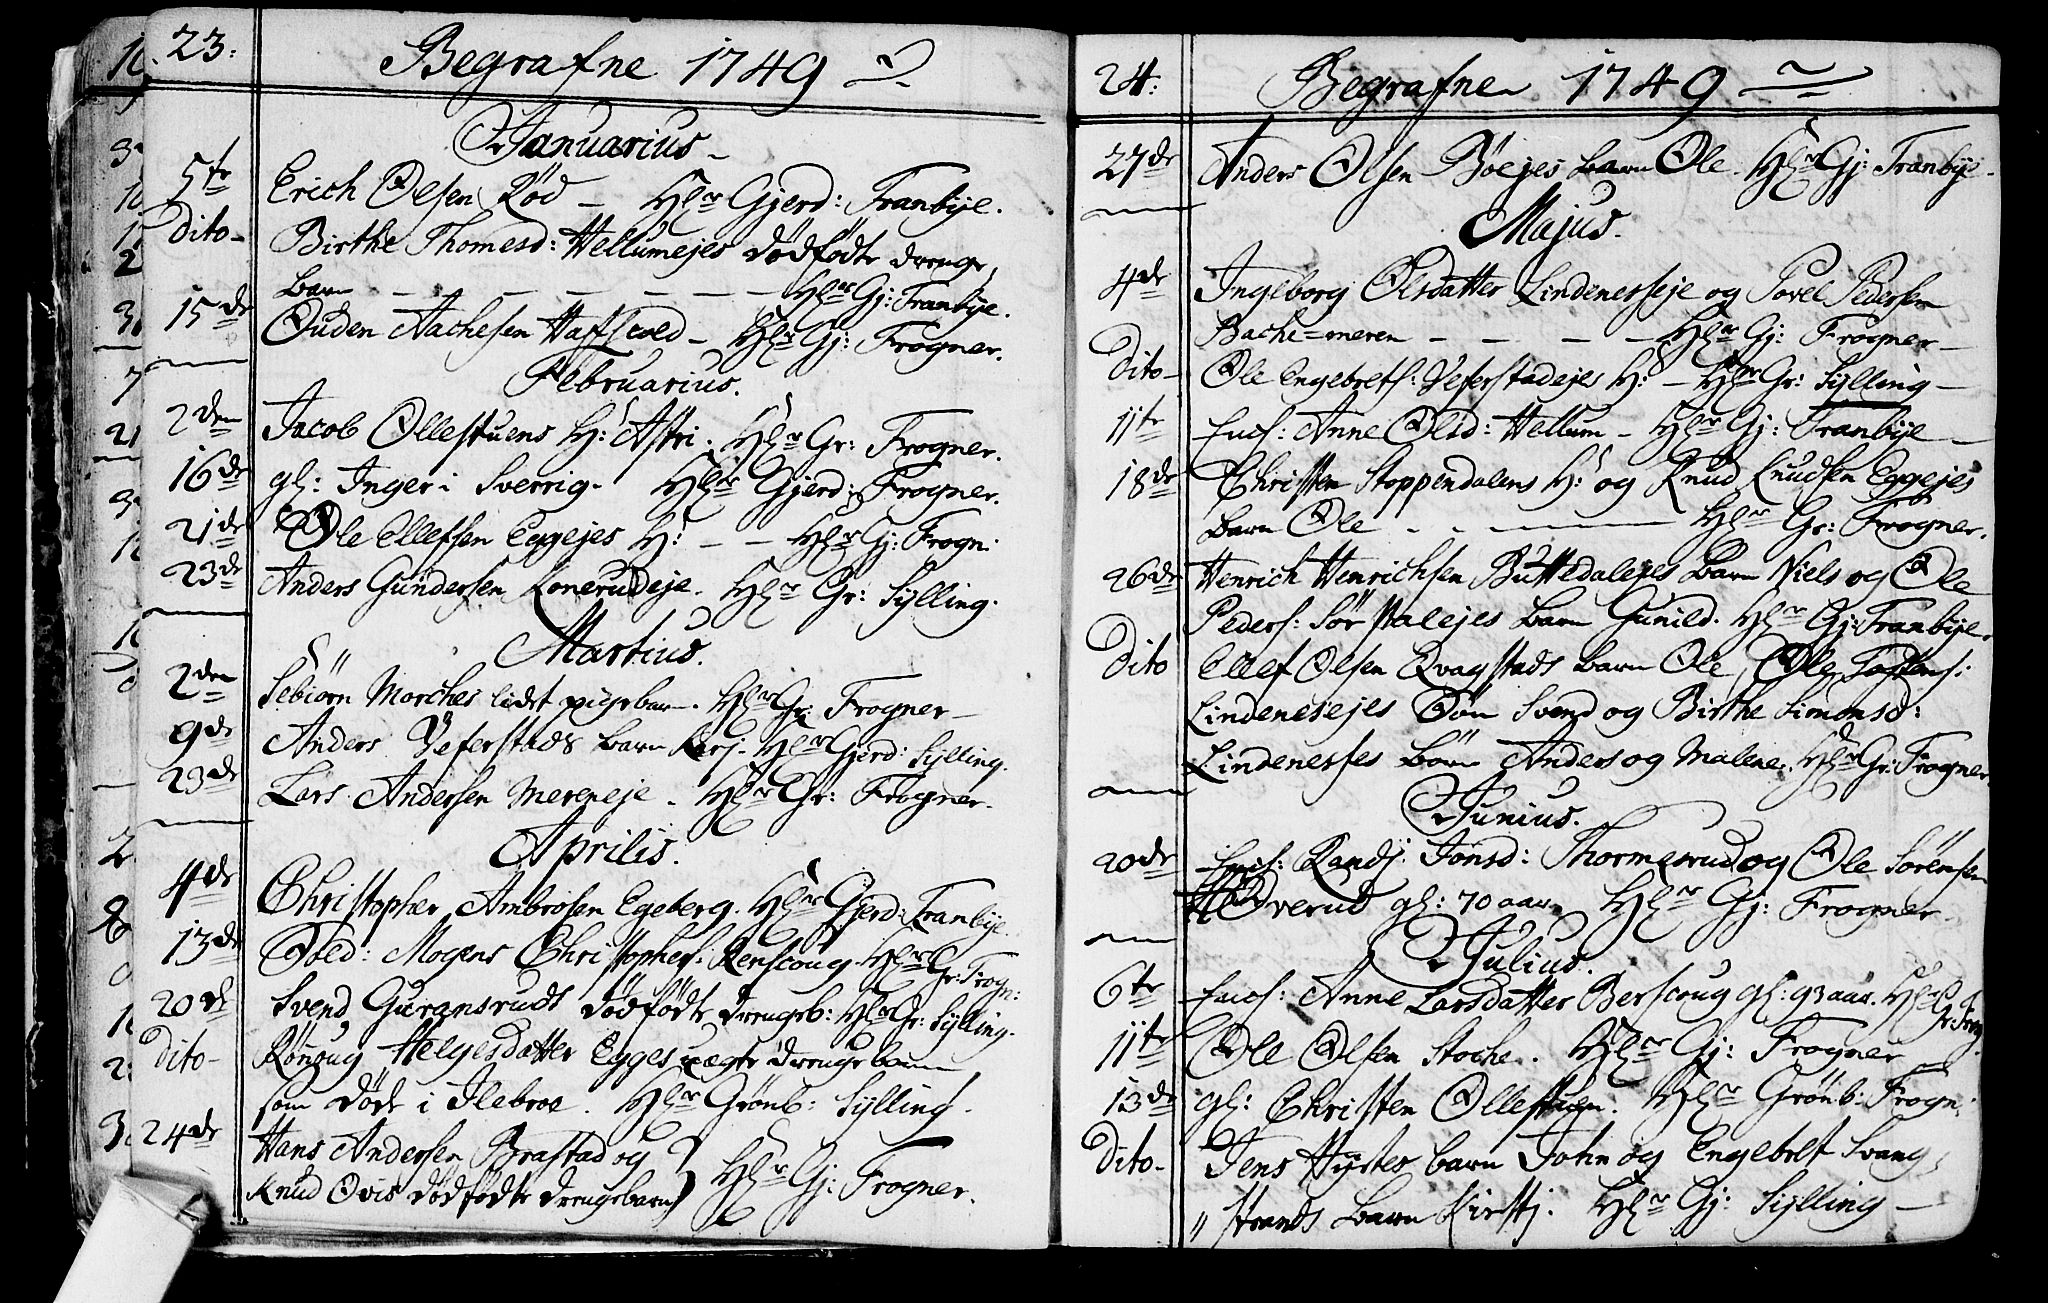 23:
Begrafne 1749
Januarius
5te Erich Olsen Rød - Hlr Gjerd: Franbÿe.
Dito Birthe Thomesd: Hellumejes dødfødte drenge,
barn - - - - - - Hlr Gj: Franbÿe.
15de Ouden Aachesen Haffscold - Hlr Gj: Frogner.
Februarius.
2den Jacob Ollestuens H: Astri. Hlr Gr: Frogner.
16de gl: Inger i Sverrig. Hlr Gjerd: Frogner.
21de Ole Ellefsen Eggejes H: - - Hlr Gj: Frogn:
23de Anders Gundersen Konerudeje. Hlr Gr: Sÿlling.
Martius.
2den Sebiørn Morches lidet pigebarn. Hlr Gr: Frogner
9de Anders Veferstads barn Hlr Gjerd: Sÿlling.
23de Lars Andersen Mereneje. Hlr Gr: Frogner.
Aprilis.
4de Christopher Ambrosen Egeberg. Hlr Gjerd: Franbÿe.
13de Sold: Mogens Christophers: Renscoug. Hlr Gr: Frogn:
20de Svend Guransruds dødfødte drengeb: Hlr Gr: Sÿlling.
Dito Rønoug Helgesdatter Egges uægte drengebarn
som døde i Ilebroe. Hlr Grønb: Sÿlling.
24de Hans Andersen Brastad og
Knud Ovis dødfødte drengebarn Hlr Gj: Frogner.
24:
Begrafne 1749
27de Anders Olsen Bøejes barn Ole. Hlr Gj: Franbÿe
Majus.
4de Ingeborg Olsdatter Lindenesseje og Povel Pedersen
Bache=meren - - - - Hlr Gj: Frogner
Dito Ole Engebrets: Veferstadejes H: - Hlr Gr: Sÿlling
11te Encs: Anne Olsd: Hellum - Hlr Gj: Franbÿe
18de Christen Stoppendalens H: og Knud Knudsen Eggejes
barn Ole - - - Hlr Gr: Frogner.
26de Henrich Henrichsen Buttedalejes barn Niels og Ole
Peders: Sørstalejes barn Gunild. Hlr Gj: Franbÿe.
Dito Ellef Olsen Qvagstads barn Ole, Ole Tostens:
Lindenesejes Søn Svend og Birthe Simonsd:
Lindenesses børn Anders og Malene. Hlr Gr: Frogner.
Junius.
20de Encs: Randj Jonsd: Thormesrud og Ole Sørensen
Overud gl: 70 aar Hlr Gj: Frogner
Julius.
6te Encs: Anne Larsdatter Berscoug gl: 93 aar. Hlr Gr: Frog:
11te Ole Olsen Stoche. Hlr Gj: Frogner
13de gl: Christen Ollestuen. Hlr Grønb: Frogn:
Dito Jens Hÿrtes barn John og Engebret Svang,
"strands barn Kirstj. Hlr Gj: Sÿlling